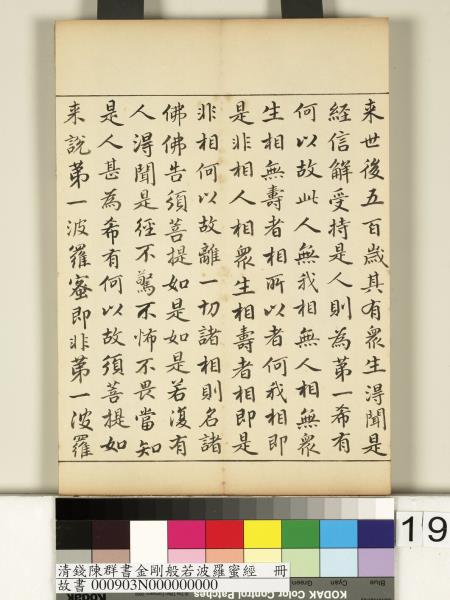 来世後五百歳其有衆生得聞是
經信解受持是人則為第一希有
何以故此人無我相無人相無衆
生相無壽者相所以者何我相即
是非相人相衆生相壽者相即是
非相何以故離一切諸相則名諸
佛佛告須菩提如是如是若復有
人得聞是經不驚不怖不畏當知
是人甚為希有何以故須菩提如
来說第一波羅蜜即非第一波羅
19
清錢陳群書金剛般若波羅蜜經 冊
故書 000903N000000000
Blue
Cyan
Green
KODAK Color Control Patches